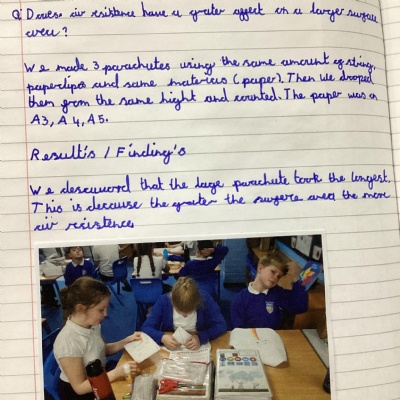 Q Does air risistence have a greater affect on a larger surface
area?
We made 3 parachutes using the same amount of string,
paperclips and same materials (paper). Then we dropped
them from the same hight and counted. The paper was on
A3, A4, A5.
Result's / Finding's
We descuvord that the large parachute took the longest.
This is because the greater the surfere area the more
air risistence